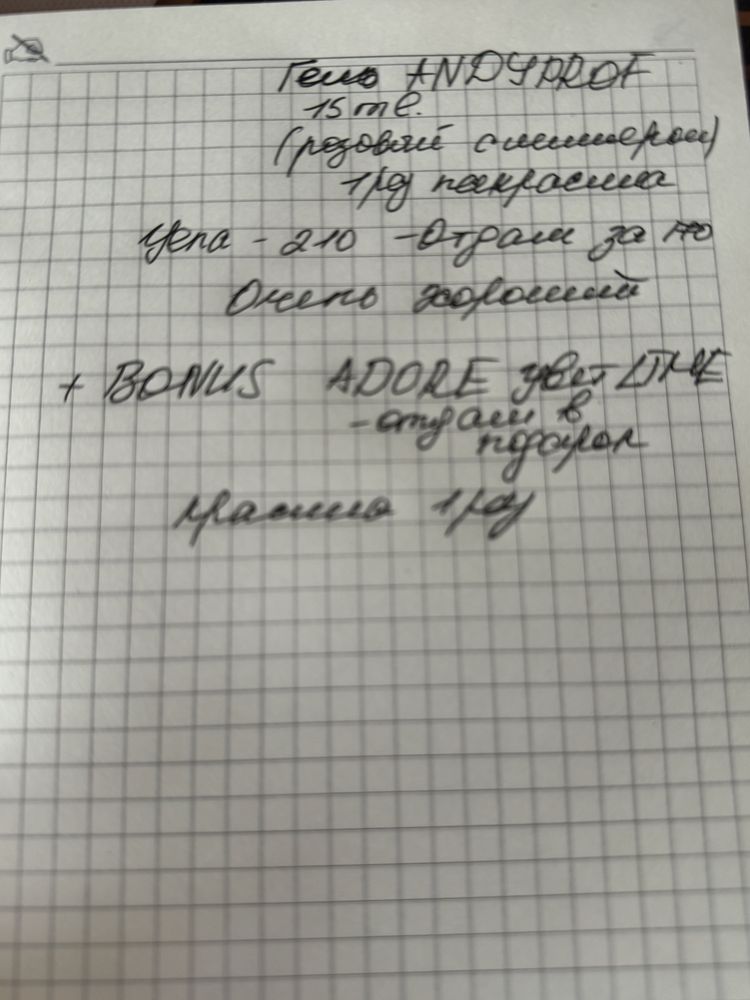 Гель ANDYPROF
15 ml.
(розовый с шиммером)
1 раз покрасила
Цена - 210 - Отдам за 170
Очень хороший
+ BONUS ADORE цвет LIME
- отдам в
подарок
красила 1 раз